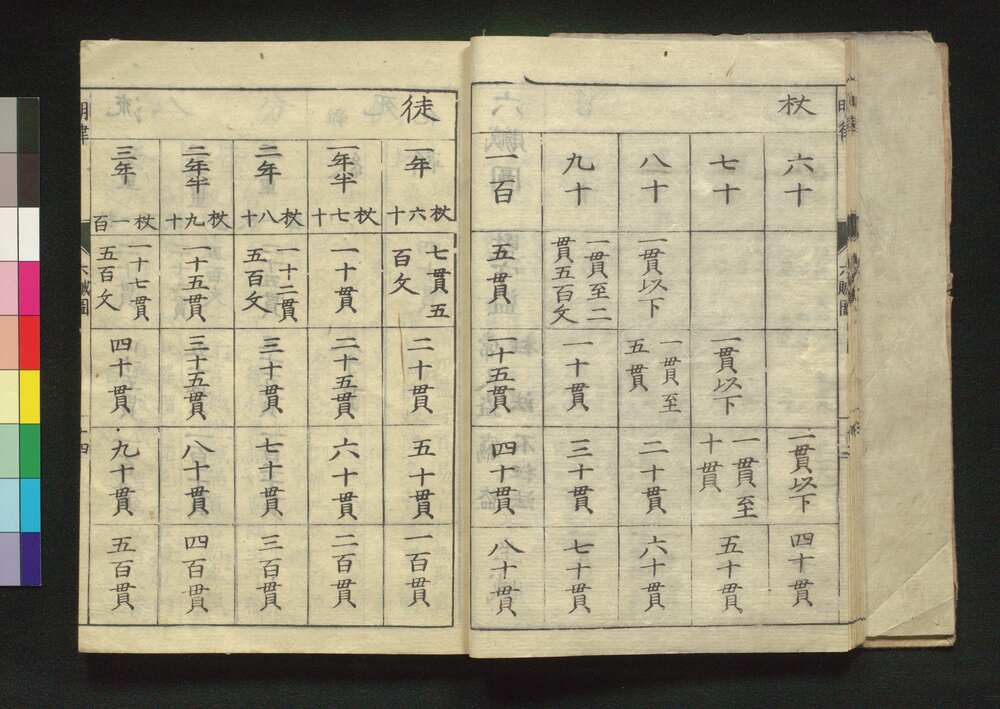 杖
六十
一貫以下
四十貫
七十
一貫以下
一貫至
十貫
五十貫
八十
一貫以下
一貫至
五貫
二十貫
六十貫
九十
一貫至二
貫五百文
一十貫
三十貫
七十貫
一百
五貫
一十五貫
四十貫
八十貫
徒
一年
杖六十
七貫五
百文
二十貫
五十貫
一百貫
一年半
杖七十
一十貫
二十五貫
六十貫
二百貫
二年
杖八十
一十二貫
五百文
三十貫
七十貫
三百貫
二年半
杖九十
一十五貫
三十五貫
八十貫
四百貫
三年
杖一百
一十七貫
五百文
四十貫
九十貫
五百貫
明律
六贓圖
十四